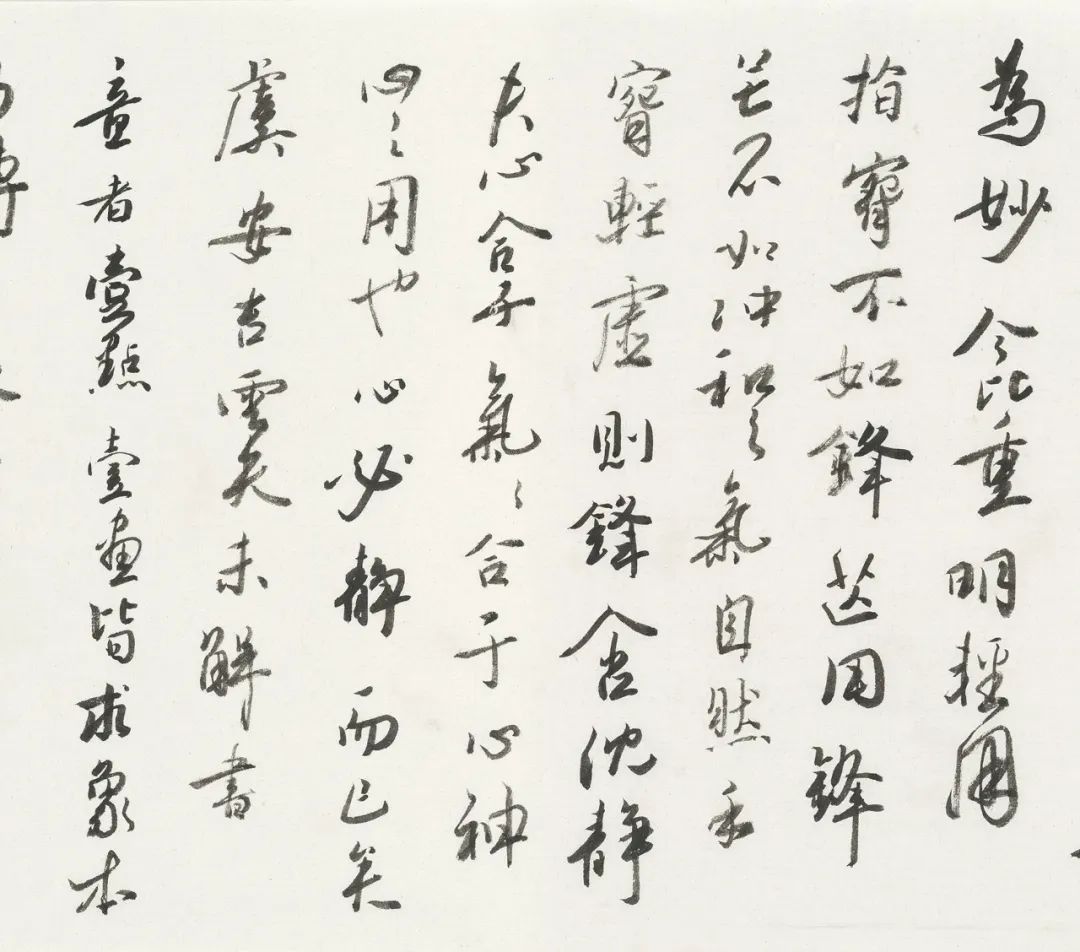 為妙今比重明輕用
指腕不如鋒芒用鋒
芒不如冲和之氣自然手
腕輕虛則鋒含沈靜
夫心合于氣〻合于心神
心之用也心必靜而已矣
虞安吉雲夫未解書
意者壹點壹畫皆求象本